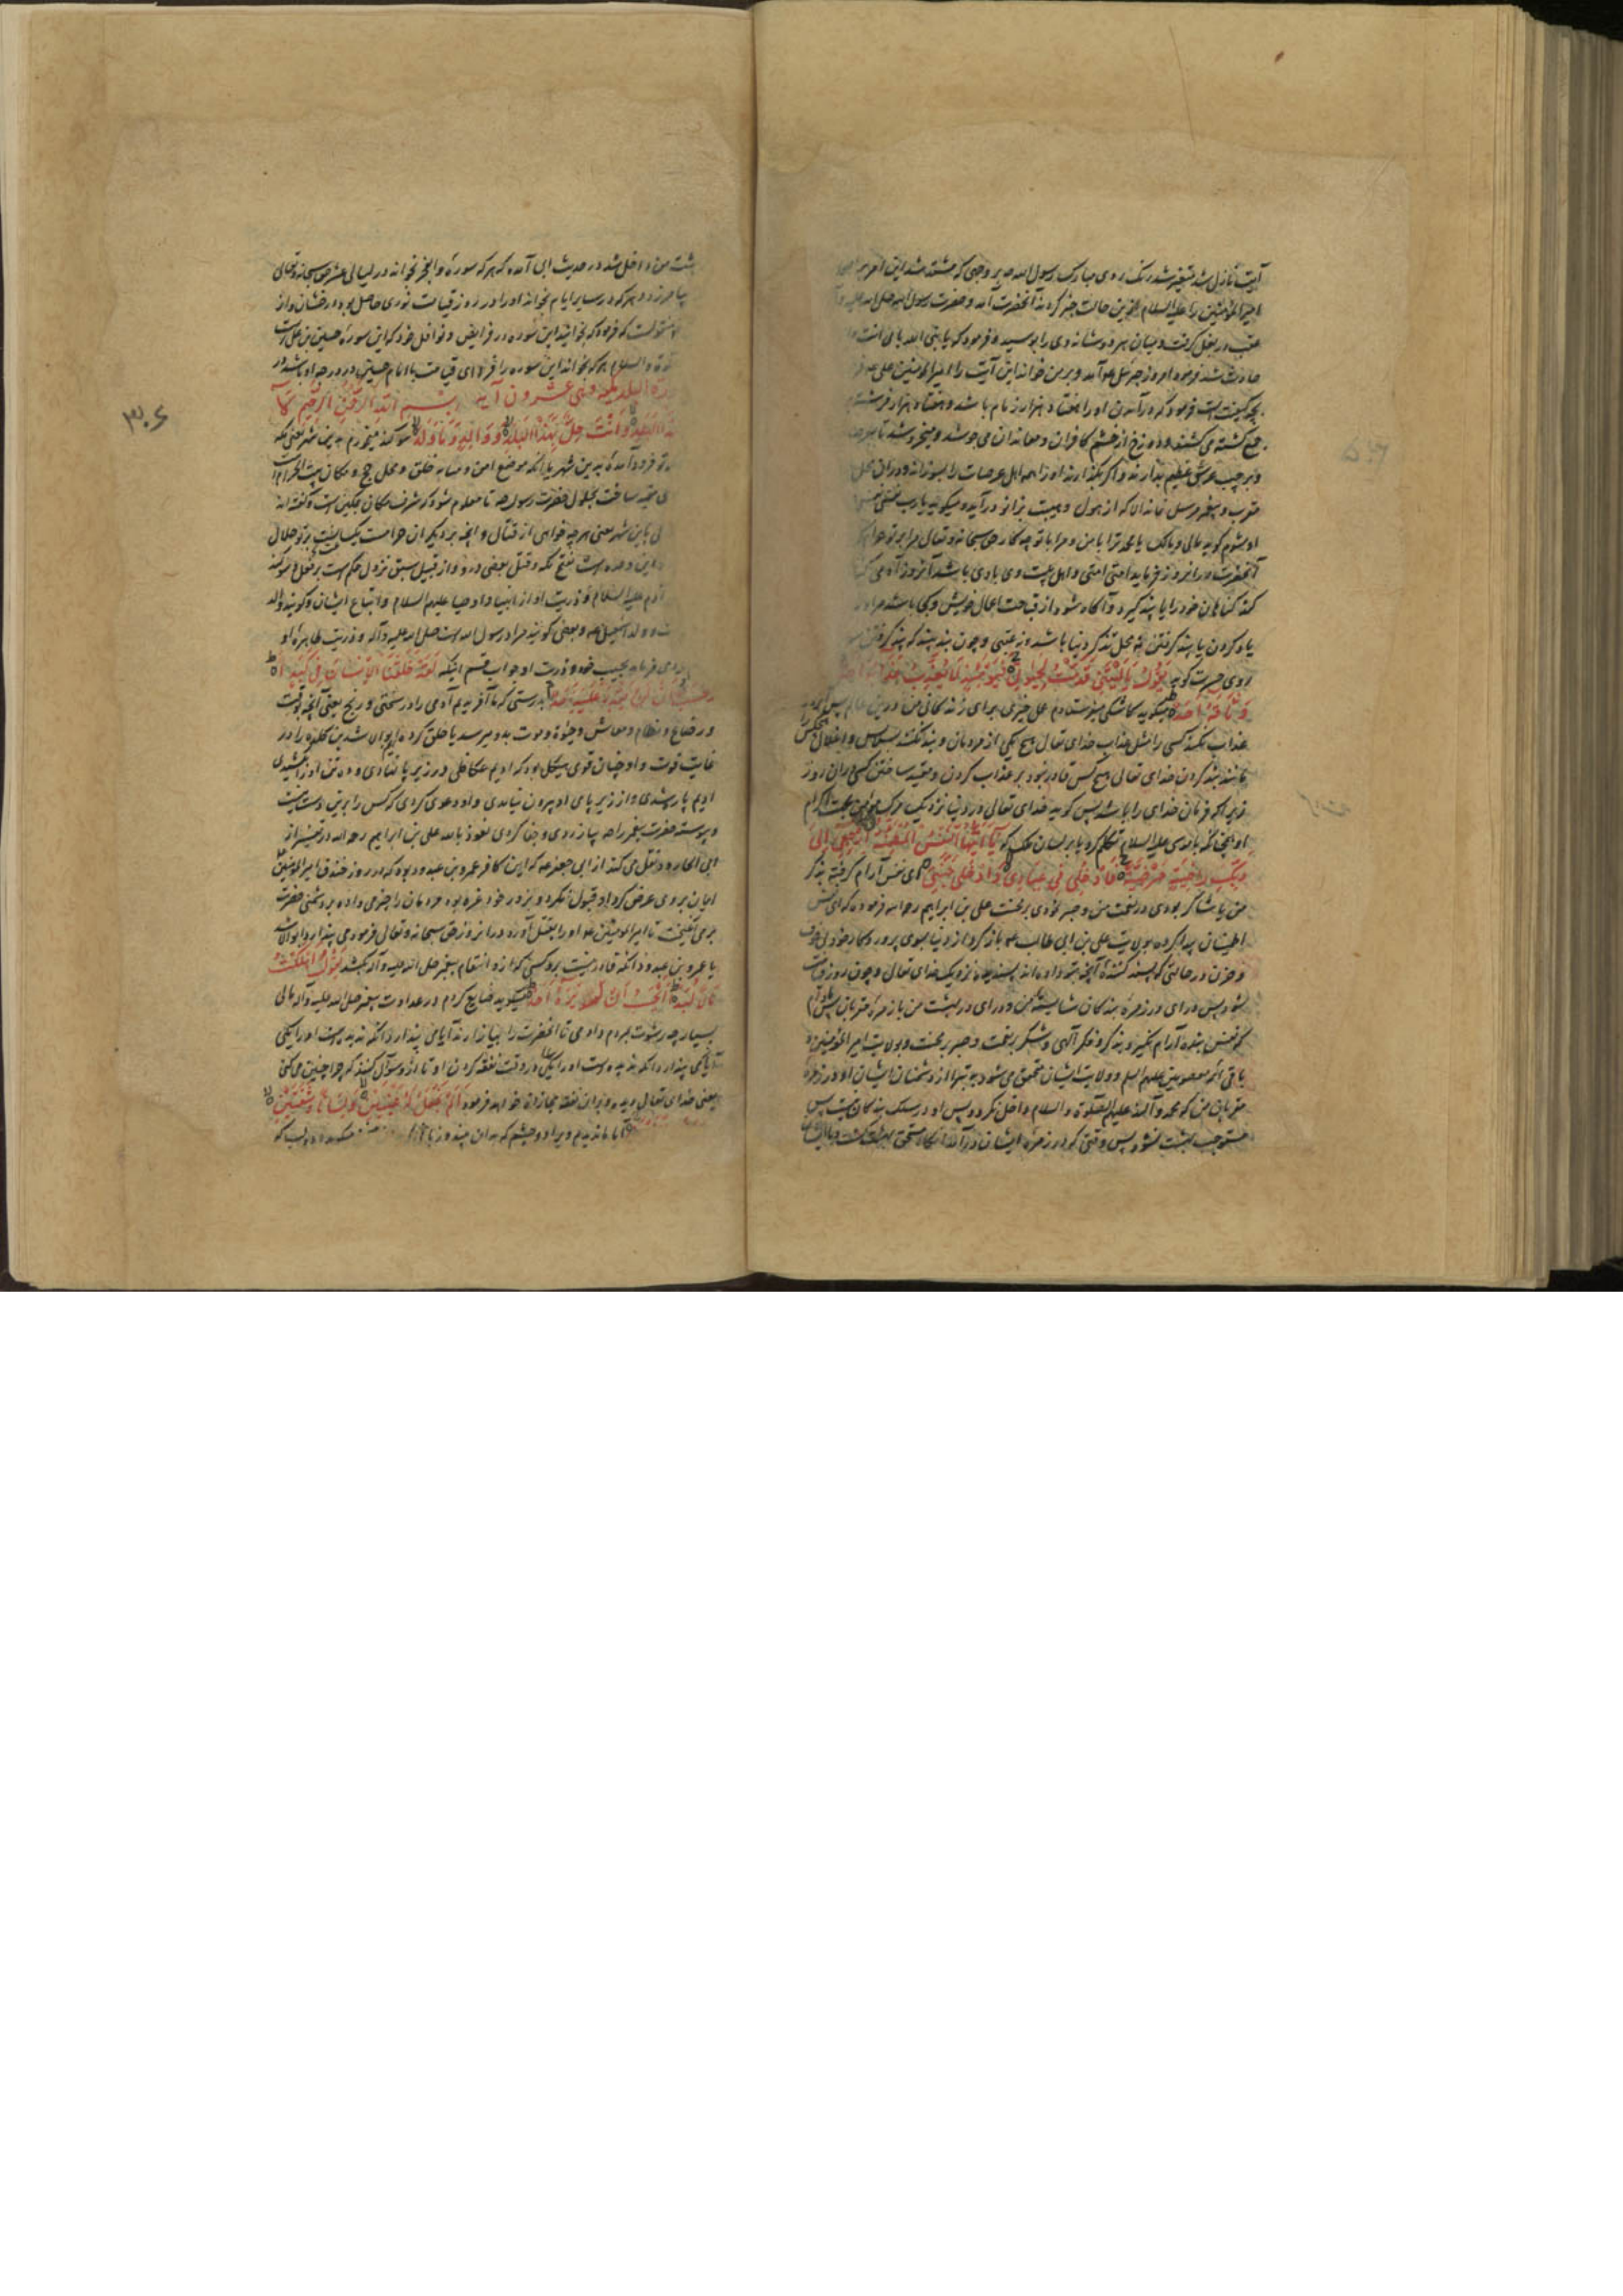 آیت نازل شد متغیر شد رنک روی مبارک رسول الله ص بر وجهی که مشتد شد این امر بر
امیر المؤمنین را علیه السلام ازین حالت خبر کردند آنحضرت آمد و حضرت رسول الله صلی الله علیه
عقب در بغل کرفت و میان هر دو شانه وی را بوسید و فرمود که یا نبی الله بابی انت و
حادث شد فرمود امروز جبرئیل ع آمد و بر من خواند این آیت را امیر المومنین علی ع
بچه کیفیت است فرمود که در آیند او را هفتاد هزار زمام باشد و هفتاد هزار فرشته
جمع کشته می کشند و دوزخ از خشم کافران و معاندان می جوشد و میخروشد تا
و بر چپ عرش عظیم بدارند و اکر بکذارند او را همه اهل عرصات را بسوزاند و در ان
مقرب و پیغمبر مرسل نماند الا که از هول و هیبت بزانو در آید و میکوید یا رب نفسی نفسی
او بشوم کوید مالی و مالک یا محمد ترا با من و مرا با تو چه کار حق سبحانه و تعالی مرا بر تو حرام
آنحضرت در ان روز فرماید امتی امتی و اهل بیت وی با وی باشد آنروز آدمی
کند کناهان خود را یا پند کیرد و آکاه شود از قباحت اعمال خویش و کجا باشد مر او را
یاد کردن یا پند کرفتن نه محل تذکر دنیا باشد نه عقبی و چون بیند که پند کرفتن
روی حسرت کوید یقول یا لیتنی قدمت لحیوتی فیومئذ لا یعذب عذابه احد
و ثاقه احد میکوید کاشکی میفرستادم عمل خیری برای زندکانی من درین عالم پس
عذاب نکند کسی را مثل عذاب خدای تعالی هیچ یکی از فردمان و بند نکند بسلاسل و اغلال هیچکس
مانند بند کردن خدای تعالی هیچ کس قادر نبود بر عذاب کردن و مقید ساختن کسی در ان روز
زیرا که فرمان خدای را باشد پس کوید خدای تعالی در دنیا نزدیک مرک مؤمن بجهت اکرام
او چنانکه با موسی علیه السلام تکلم کرد یا بر لسان ملک که یا ایتها النفس المطمئنة ارجعی الی
ربک راضیة مرضیة فادخلی فی عبادی وادخلی جنتی ای نفس آرام کرفته بذکر
من یا شاکر بودی در نعمت من و صبر نمودی بر محنت علی بن ابراهیم رحمه فرموده که ای نفس
اطمینان پیدا کرده بولایت علی بن ابی طالب ع باز کرد از دنیا بسوی پروردکار خود بی خوف
و حزن در حالتی که پسند کنندهٔ آنچه بتو داده اند پسندیده نزدیک خدای تعالی و چون روز قیامت
شود پس در ای در زمرهٔ بندکان شایستهٔ من و درای در بهشت من با زمرهٔ مقربان
که نفس بنده آرام نکیرد بذکر و فکر الهی و شکر بر نعمت و صبر بر محنت و بولایت امیر المؤمنین و
باقی ائمه معصومین علیهم السلم و ولایت ایشان متحقق می شود بتبرا از دشمنان ایشان او در زمرهٔ
مقربان من که محمد و آل محمد علیهم الصلوة والسلام داخل نکردد پس او در سلک بندکان نیست پس
مستوجب بهشت نشود پس وقتی که در زمرهٔ ایشان در آمد آنکاه مستحق بهشت کشت
بهشت من داخل شد در حدیث ابی آمده که هر که سورهٔ والفجر بخواند در لیالی عشر حق سبحانه و تعالی
بیامرزد و هر که در سایر ایام بخواند او را در روز قیامت نوری حاصل بود درخشان و از
منقولست که فرمود که بخوانید این سوره در فرایض و نوافل خود که این سورهٔ حسین بن علی است
والسلام هر که بخواند این سوره را فردای قیامت با امام حسین در درجه او باشد
سورة البلد مکیه و هی عشرون آیة بسم الله الرحمن الرحیم لا
البلد وانت حل بهذا البلد ووالد وما ولد سوکند میخورم باین شهر یعنی مکه
تو فرود آمدهٔ بدین شهر با آنکه موضع امن و مثابه خلق و محل حج و مکان بیت الحرام است
مقید ساخت بحلول حضرت رسول ص تا معلوم شود که شرف مکان بمکین است و کفته اند
باین شهر یعنی هر چه خواهی از قتال و آنچه بر دیکران حرامست یک ساعت بر تو حلال
این وعده است بفتح مکه و قتل بعضی درو و از قبیل سبق نزول حکم است بر فعل و سوکند
آدم علیه السلام و ذریت او از انبیا و اوصیا علیهم السلام و اتباع ایشان و کویند والد
و ولد اسمعیل ع و بعضی کویند مراد رسول الله است صلی الله علیه و آله و ذریت طاهره او
فرماید بحبیب خود و ذریت او جواب قسم اینکه لقد خلقنا الانسان فی کبد ا
یحسب ان لن یقدر علیه احد بدرستی که ما آفریدیم آدمی را در سختی و رنج یعنی آنچه بوقت
و رضاع و فطام و معاش و حیوة و موت بدو میرسد یا خلق کرده ایم ابوالاشدین کلده را در
غایت قوت و او چنان قوی هیکل بود که ادیم عکاظی در زیر پا نهادی و ده تن او را کشیدی
ادیم پاره شدی و از زیر پای او بیرون نیامدی و او دعوی کردی که کس را برین دست نیست
و پیوسته حضرت پیغمبر را ص بیازردی و جفا کردی نعوذ بالله علی بن ابراهیم رحمه الله در تفسیر از
ابی الجارود نقل می کند از ابی جعفر ع که این کافر عمرو بن عبدود بود که در روز خندق امیر المومنین
ایمان بروی عرض کرد او قبول نکرد و بزور خود غره بود مردمان را چیزی داده بر دشمنی حضرت
بر می انکیخت تا امیر المومنین ع او را بقتل آورد در انروز حق سبحانه و تعالی فرمود می پندارد ابو الاشد
یا عمرو بن عبدود آنکه قادر نیست برو کسی که ازو انتقام پیغمبر صلی الله علیه و آله بکشد یقول اهلکت
مالا لبدا ایحسب ان لم یره احد میکوید ضایع کردم در عداوت پیغمبر صلی الله علیه و آله مالی
بسیار چه رشوت بمردم دادمی تا آنحضرت را بیازارند آیا می پندارد آنکه ندیدست او را یکی
آیا می پندارد آنکه ندیده است او را یکی در وقت نفقه کردن او تا ازو سؤال کند که چرا چنین میکنی
یعنی خدای تعالی دیده و بران نفقه مجازاة خواهد فرمود الم نجعل له عینین ولسانا وشفتین
آیا ما ندادیم ویرا دو چشم که بدان بیند و زبان
۳۰۶